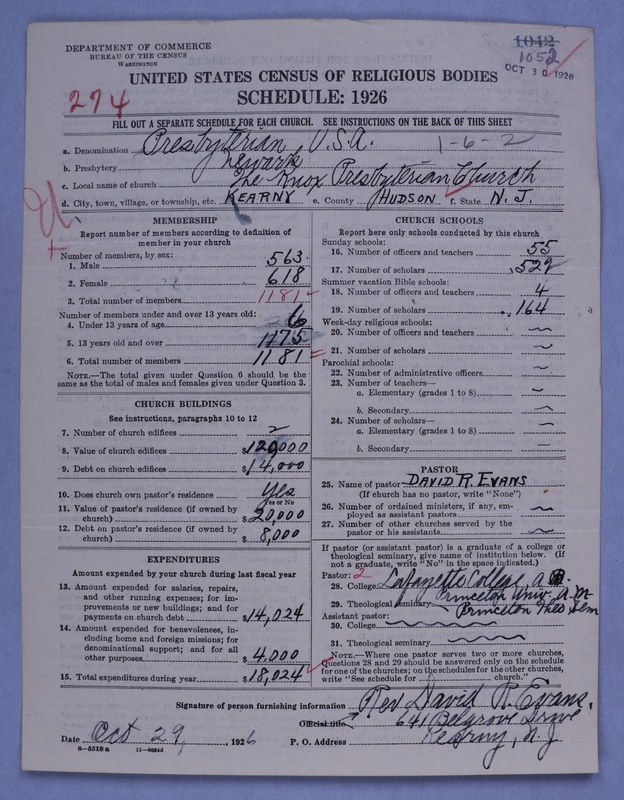 DEPARTMENT OF COMMERCE
BUREAU OF THE CENSUS
WASHINGTON
1042
1052
OCT 30 1926
UNITED STATES CENSUS OF RELIGIOUS BODIES
274
SCHEDULE: 1926
FILL OUT A SEPARATE SCHEDULE FOR EACH CHURCH. SEE INSTRUCTIONS ON THE BACK OF THIS SHEET
a. Denomination Presbyterian U.S.A. 1-6-2
b. Presbytery Newark
c. Local name of church The Knox Presbyterian Church
d. City, town, village, or township, etc. KEARNY e. County HUDSON f. State N. J.
MEMBERSHIP
Report number of members according to definition of
member in your church
Number of members, by sex:
1. Male 563
2. Female 618
3. Total number of members 1181
Number of members under and over 13 years old:
4. Under 13 years of age 6
5. 13 years old and over 1175
6. Total number of members 1181
NOTE.—The total given under Question 6 should be the
same as the total of males and females given under Question 3.
CHURCH BUILDINGS
See instructions, paragraphs 10 to 12
7. Number of church edifices 2
8. Value of church edifices $120000
9. Debt on church edifices $14,000
10. Does church own pastor's residence Yes
Yes or No
11. Value of pastor's residence (if owned by
church) $20,000
12. Debt on pastor's residence (if owned by
church) $8,000
EXPENDITURES
Amount expended by your church during last fiscal year
13. Amount expended for salaries, repairs,
and other running expenses; for im-
provements or new buildings; and for
payments on church debt $14,024
14. Amount expended for benevolences, in-
cluding home and foreign missions; for
denominational support; and for all
other purposes $4,000
15. Total expenditures during year $18,024
CHURCH SCHOOLS
Report here only schools conducted by this church
Sunday schools:
16. Number of officers and teachers 55
17. Number of scholars 529
Summer vacation Bible schools:
18. Number of officers and teachers 4
19. Number of scholars 164
Week-day religious schools:
20. Number of officers and teachers
21. Number of scholars
Parochial schools:
22. Number of administrative officers
23. Number of teachers—
a. Elementary (grades 1 to 8)
b. Secondary
24. Number of scholars—
a. Elementary (grades 1 to 8)
b. Secondary
PASTOR
25. Name of pastor DAVID R. EVANS
(If church has no pastor, write "None")
26. Number of ordained ministers, if any, em-
ployed as assistant pastors
27. Number of other churches served by the
pastor or his assistants
If pastor (or assistant pastor) is a graduate of a college or
theological seminary, give name of institution below. (If
not a graduate, write "No" in the space indicated.)
Pastor: 2
28. College Lafayette College, A.
Princeton Univ. A.M
29. Theological seminary Princeton Theo Sem
Assistant pastor:
30. College
31. Theological seminary
NOTE.—Where one pastor serves two or more churches,
Questions 28 and 29 should be answered only on the schedule
for one of the churches; on the schedules for the other churches,
write "See schedule for church."
Signature of person furnishing information Rev David R. Evans,
Official title
641 Belgrove Drive
Date Oct 29, 1926 P. O. Address Kearny, N J
8—5518a 11—9654d